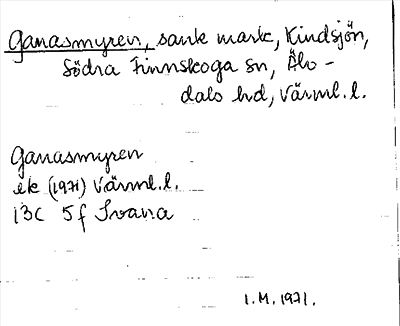 Ganasmyren, sank mark, Kindsjön,
Södra Finnskoga sn, Älv-
dals hd, Värml. l.
Ganasmyren
ek (1971) Värml. l.
13C 5f Svana
I.M. 1971.